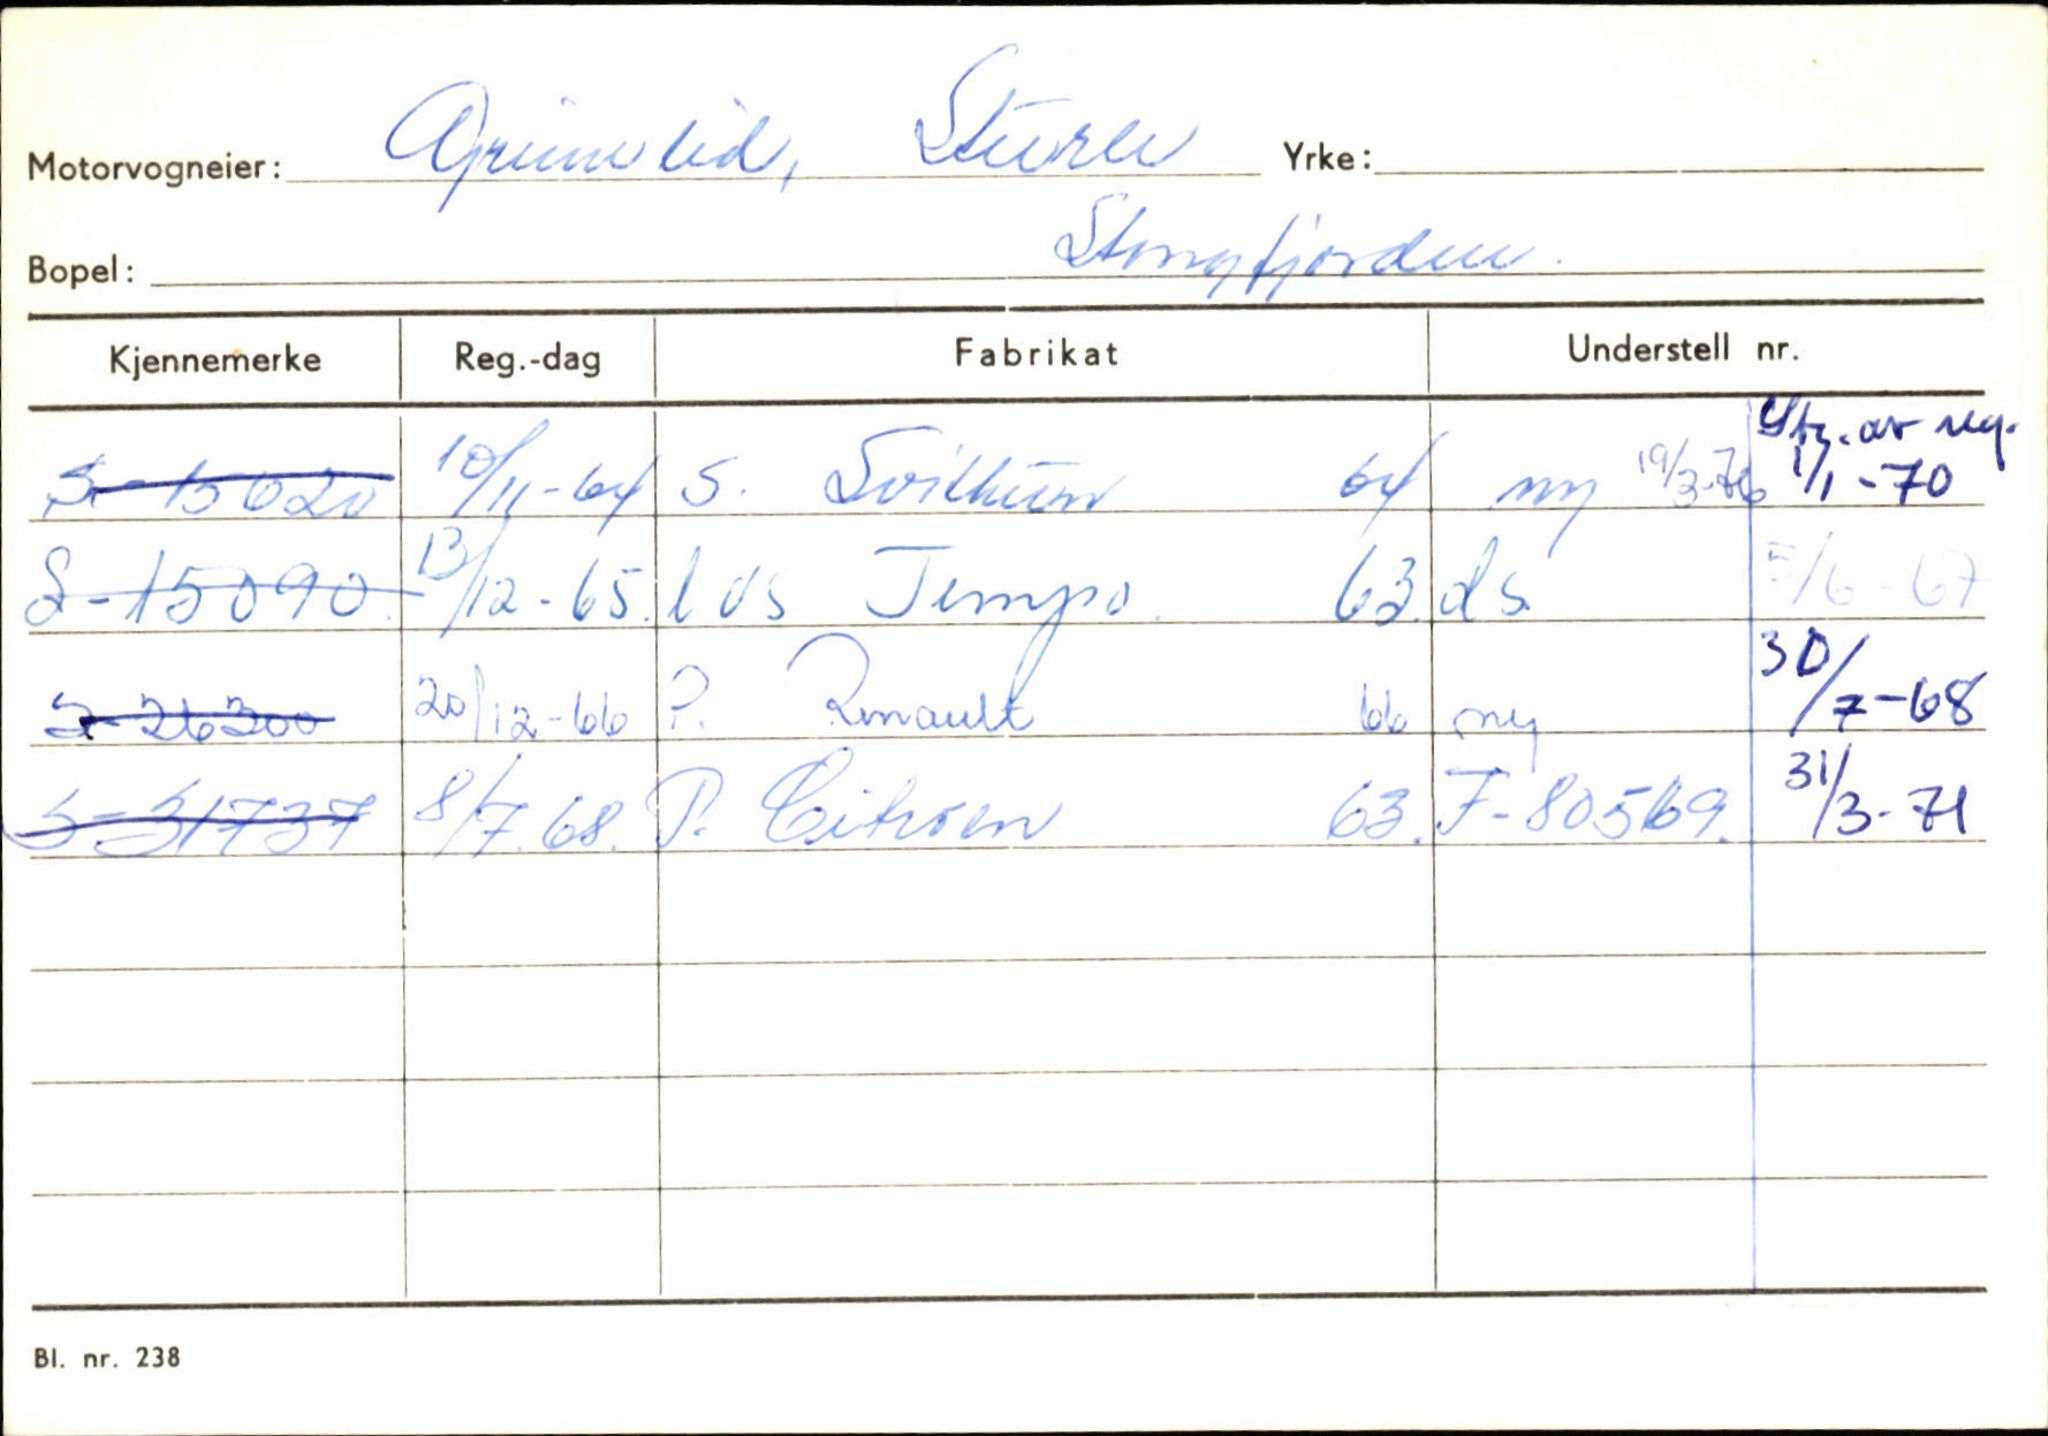 Motorvogneier: Grimelid, Sturle Yrke:
Bopel: Stongfjorden.
Kjennemerke Reg.-dag Fabrikat Understell nr.
Stg. av reg.
S-15620 10/11-64 S. Svithun 64 ny 19/3-70 1/1-70
S-15090. 13/12-65. lds Tempo. 63. ds. 5/6-67
S-26300 20/12-66 P. Renault 66 ny 30/7-68
S-31737 8/7.68. P. Citroen 63. F-80569. 31/3-71
Bl. nr. 238